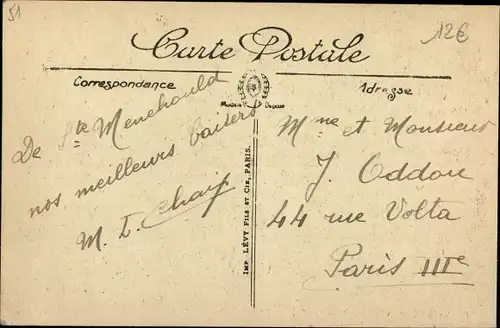 51
12€
Carte Postale
Correspondance
Adresse
De Ste Menehould
nos meilleurs baisers
M. L. Chap
IMP. LÉVY FILS ET CIE, PARIS.
Mme et Monsieur
J Oddou
44 rue Volta
Paris IIIe